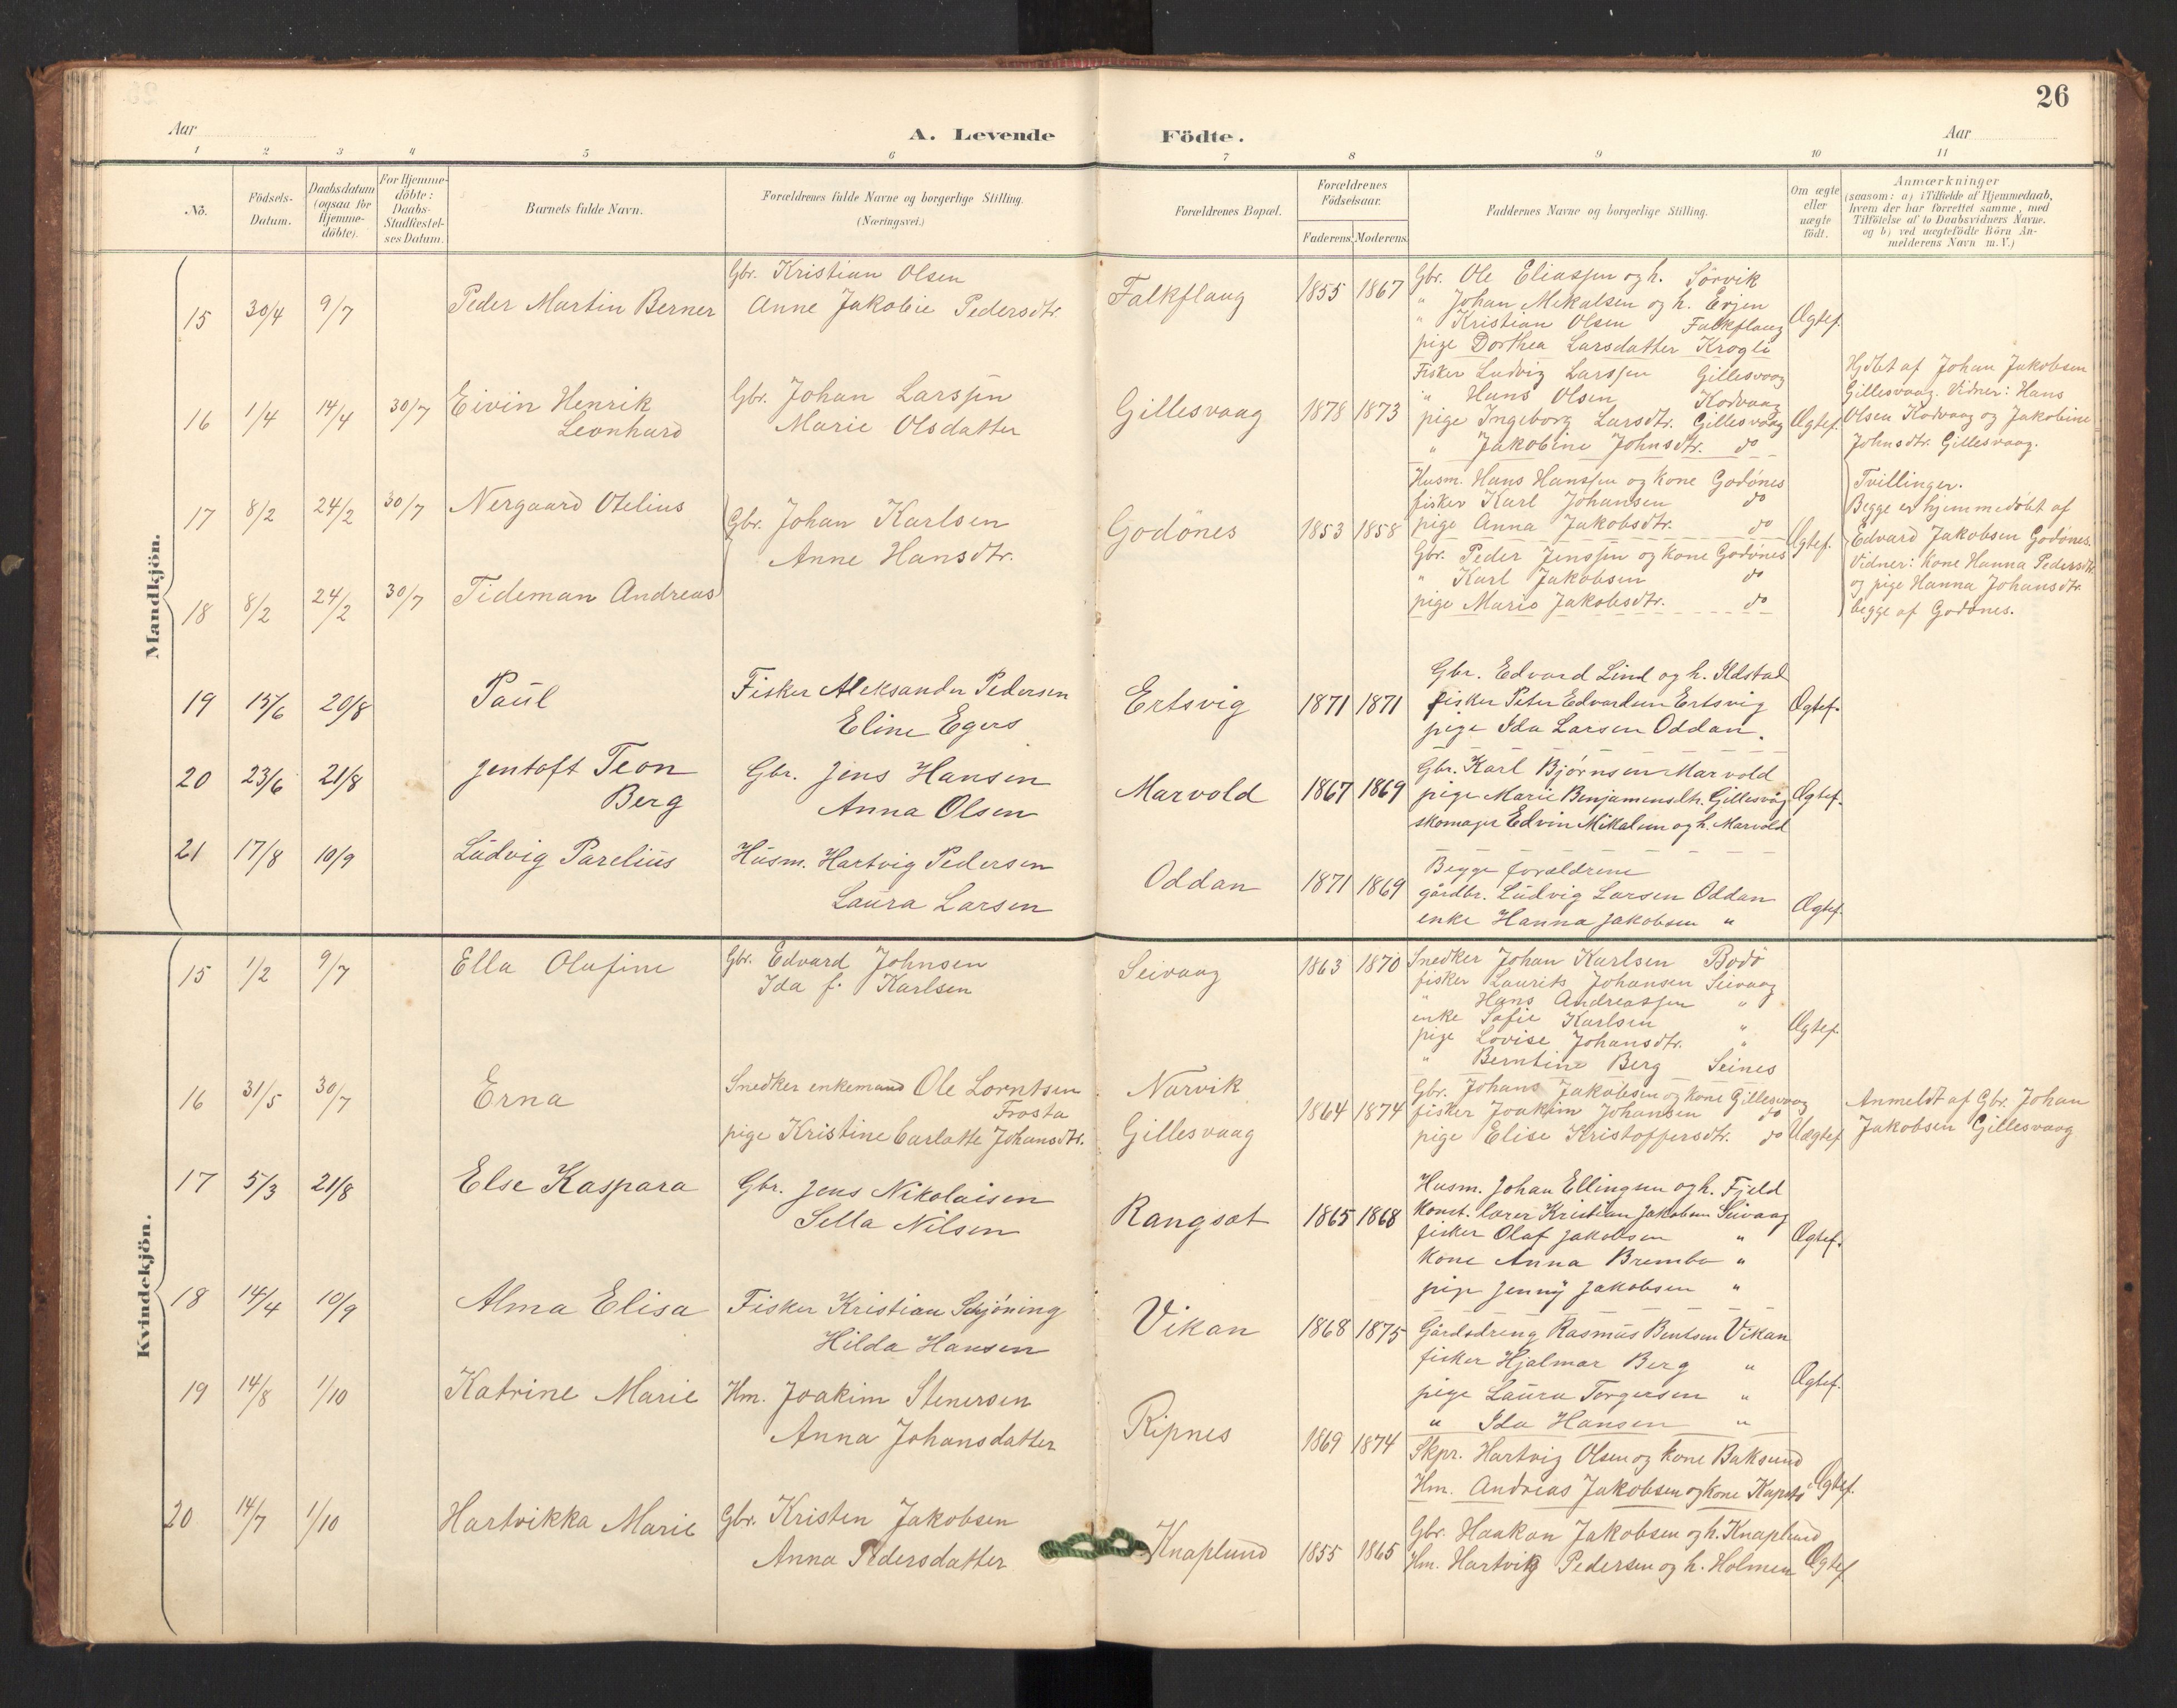 26
Aar
A. Levende
Födte.
Aar
1 2 3 4 5 6 7 8 9 10 11
No.
Födsels-
Datum.
Daabsdatum
(ogsaa for
Hjemme-
döbte).
For Hjemme-
döbte:
Daabs-
Stadfæstel-
ses Datum.
Barnets fulde Navn.
Forældrenes fulde Navne og borgerlige Stilling.
(Næringsvei.)
Forældrenes Bopæl.
Forældrenes
Födselsaar.
Faderens. Moderens.
Faddernes Navne og borgerlige Stilling.
Om ægte
eller
uægte
födt.
Anmærkninger
(saasom: a) i Tilfælde af Hjemmedaab,
hvem der har forrettet samme, med
Tilföielse af to Daabsvidners Navne.
og b) ved uægtefödte Börn An-
melderens Navn m. V.)
Mandkjön.
15 30/4 9/7
Peder Martin Berner
Gbr. Kristian Olsen
Anne Jakobie Pedersdtr.
Falkflaug
1855 1867
Gbr. Ole Eliassen og h. Sörvik
" Johan Mikalsen og h. Evjen
" Kristian Olsen Falkflaug
pige Dorthea Larsdatter Krogli
Ægtef.
16 1/4 14/4 30/7
Eivin Henrik
Leonhard
Gbr. Johan Larssen
Marie Olsdatter
Gillesvaag
1878 1873
Fisker Ludvig Larssen Gillesvaag
" Hans Olsen Kodvaag
pige Ingeborg Larsdtr. Gillesvaag
" Jakobine Johnsdtr. do
Ægtef.
Hjdbt af Johan Jakobsen
Gillesvaag. Vidner: Hans
Olsen Kodvaag og Jakobine
Johnsdtr. Gillesvaag.
17 8/2 24/2 30/7
Nergaard Otelius
Gbr. Johan Karlsen
Anne Hansdtr.
Godönes
1853 1858
Husm. Hans Hanssen og kone Godönes
fisker Karl Johansen do
pige Anna Jakobsdtr. do
Ægtef.
Tvillinger.
Begge er hjemmedöbt af
Edvard Jakobsen Godönes.
Vidner: Kone Hanna Pedersdtr.
og pige Hanna Johansdtr.
begge af Godönes.
18 8/2 24/2 30/7
Tideman Andreas
Gbr. Peder Jenssen og kone Godönes
" Karl Jakobsen do
pige Marie Jakobsdtr. do
19 15/6 20/8
Paul
Fisker Aleksander Pedersen
Eline Egers
Ertsvig
1871 1871
Gbr. Edvard Lind og h. Ildstad
fisker Peter Edvardsen Ertsvig
pige Ida Larsen Oddan.
Ægtef.
20 23/6 21/8
Jentoft Teon
Berg
Gbr. Jens Hansen
Anna Olsen
Marvold
1867 1869
Gbr. Karl Bjørnsen Marvold
pige Marie Benjamensdtr. Gillesvåg
skomager Edvin Mikalsen og h. Marvold
Ægtef.
21 17/8 10/9
Ludvig Parelius
Husm. Hartvig Pedersen
Laura Larsen
Oddan
1871 1869
Begge forældrene
gårdbr. Ludvig Larsen Oddan
enke Hanna Jakobsen "
Ægtef.
Kvindekjön.
15 1/2 9/7
Ella Olufine
Gbr. Edvard Johnsen
Ida f. Karlsen
Seivaag
1863 1870
Snedker Johan Karlsen Bodö
fisker Laurits Johansen Seivaag
" Hans Andreassen "
enke Sofie Karlsen "
pige Lovise Johansdtr. "
" Berntine Berg Seines
Ægtef.
16 31/5 30/7
Erna
Snedker enkemand Ole Lorntsen
Frosta
pige Kristine Carlotte Johansdtr.
Narvik
Gillesvaag
1864 1874
Gbr. Johans Jakobsen og kone Gillesvaag
fisker Joakim Johansen do
pige Elise Kristoffersdtr. do
Uægtef.
Anmeldt af Gbr. Johan
Jakobsen Gillesvaag
17 5/3 21/8
Else Kaspara
Gbr. Jens Nikolaisen
Sella Nilsen
Rangsæt
1865 1868
Husm. Johan Ellingsen og h. Fjeld
Konst. lærer Kristian Jakobsen Seivaag
fisker Olaf Jakobsen "
Kone Anna Brembo "
pige Jenny Jakobsen "
Ægtef.
18 14/4 10/9
Alma Elisa
Fisker Kristian Schjöning
Hilda Hansen
Vikan
1868 1875
Gårdsdreng Rasmus Bentsen Vikan
fisker Hjalmar Berg "
pige Laura Torgersen "
" Ida Hansen "
Ægtef.
19 14/8 1/10
Katrine Marie
Hm. Joakim Stenersen
Anna Johansdatter
Ripnes
1869 1874
Skpr. Hartvig Olsen og kone Baksund
Hm. Andreas Jakobsen og kone
Ægtef.
20 14/7 1/10
Hartvikka Marie
Gbr. Kristen Jakobsen
Anna Pedersdatter
Knaplund
1855 1865
Gbr. Haakon Jakobsen og h. Knaplund
Hm. Hartvig Pedersen og h. Holmen
Ægtef.